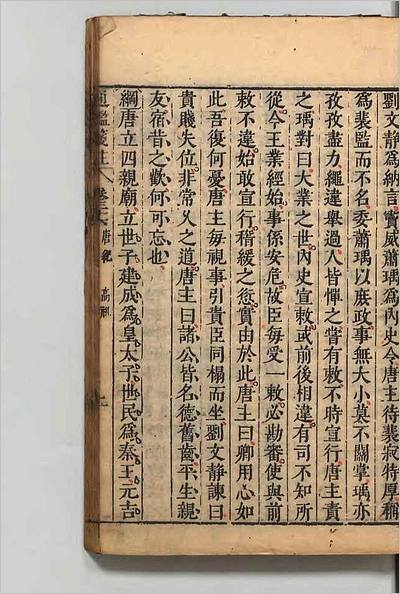 劉文靜爲納言竇威蕭瑀爲内史令唐主待裴寂特厚稱
爲裴監而不名委蕭瑀以庶政事無大小莫不關掌瑀亦
孜孜盡力繩違舉過人皆憚之嘗有敕不時宣行唐主責
之瑀對曰大業之世内史宣敕或前後相違有司不知所
從今王業經始事係安危故臣每受一敕必勘審使與前
敕不違始敢宣行稽緩之愆實由於此唐主曰卿用心如
此吾復何憂唐主每視事引貴臣同榻而坐劉文靜諫曰
貴賤失位非常久之道唐主曰諸公皆名德舊齒平生親
友宿昔之歡何可忘也
綱唐立四親廟立世子建成爲皇太子世民爲秦王元吉
通鑑箋註 卷 唐紀 高祖